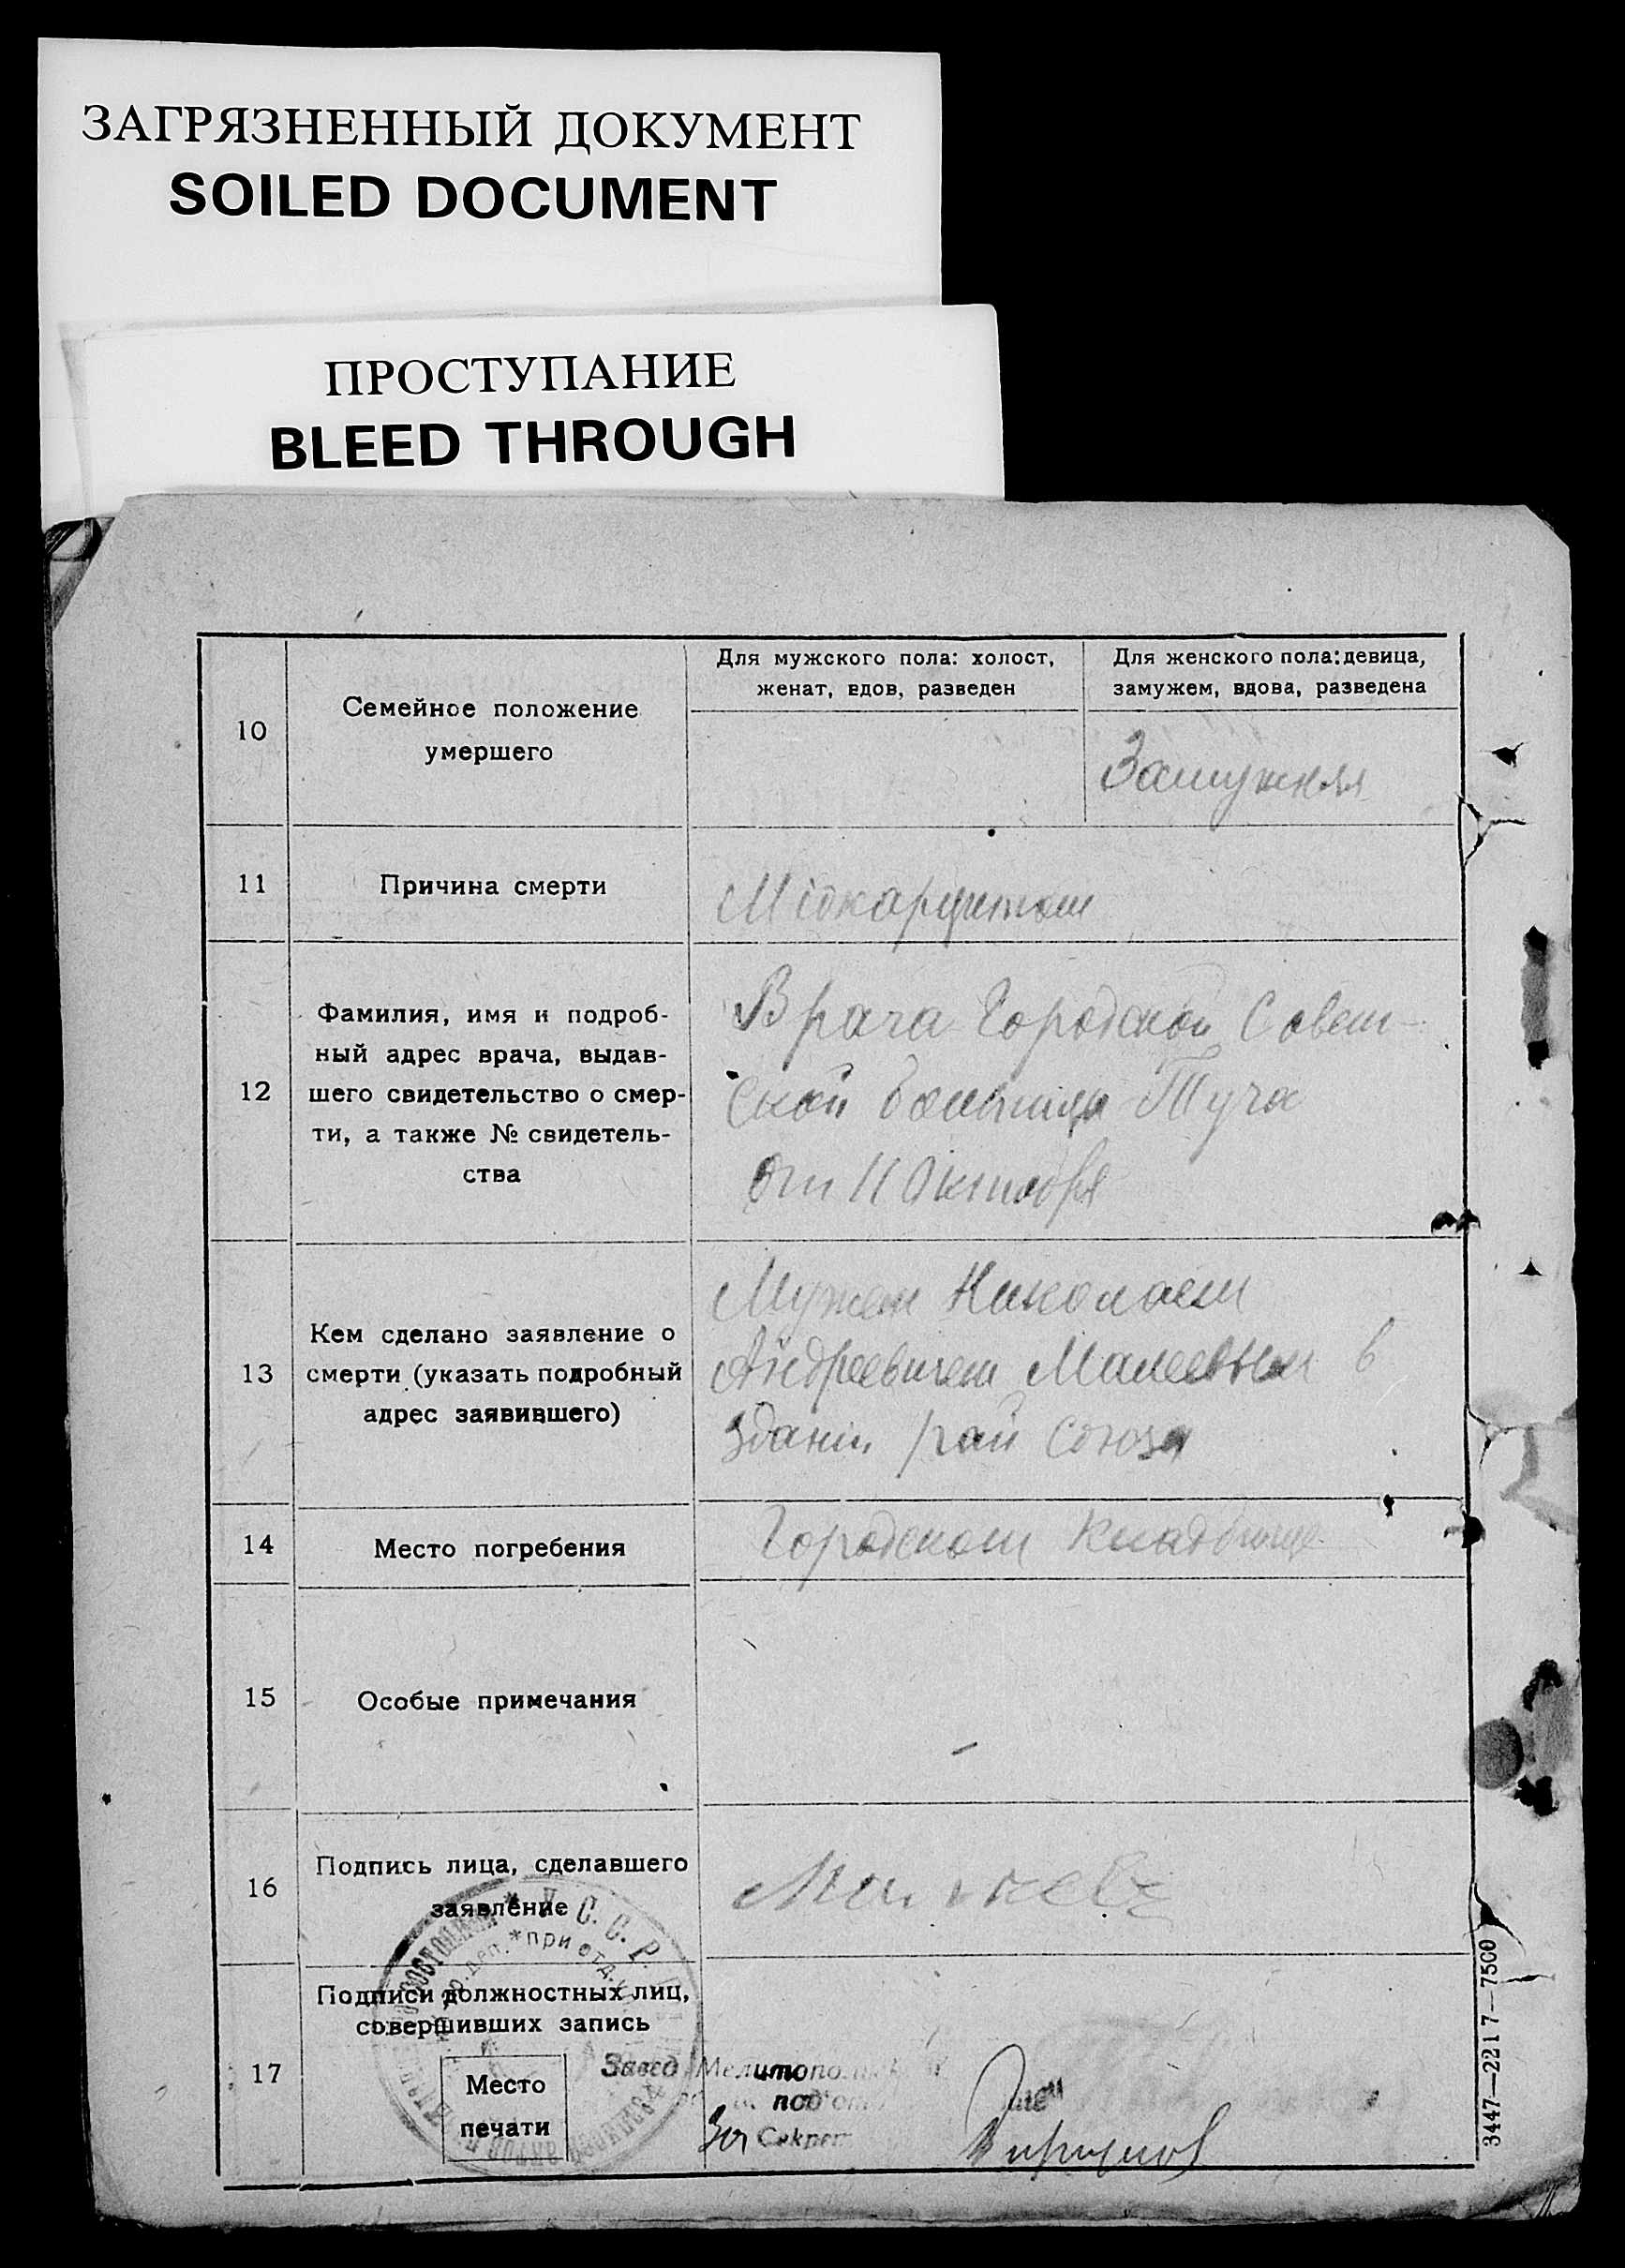 ЗАГРЯЗНЕННЫЙ ДОКУМЕНТ
SOILED DOCUMENT
ПРОСТУПАНИЕ
BLEED THROUGH
10
Семейное положение
умершего
Для мужского пола: холост,
женат, вдов, разведен
Для женского пола: девица,
замужем, вдова, разведена
Замужняя
11
Причина смерти
Міокардитом
12
Фамилия, имя и подроб-
ный адрес врача, выдав-
шего свидетельство о смер-
ти, а также № свидетель-
ства
Врача Городской Совет-
ской больницы Туча
от 11 Октября
13
Кем сделано заявление о
смерти (указать подробный
адрес заявившего)
Мужем Николаем
Андреевичем Малеевым в
здании рай союза
14
Место погребения
Городском Кладбище
15
Особые примечания
16
Подпись лица, сделавшего
заявление
17
Подписи должностных лиц,
совершивших запись
Место
печати
Завед
под
За Секрет
* при отд.
3447—2217—7500